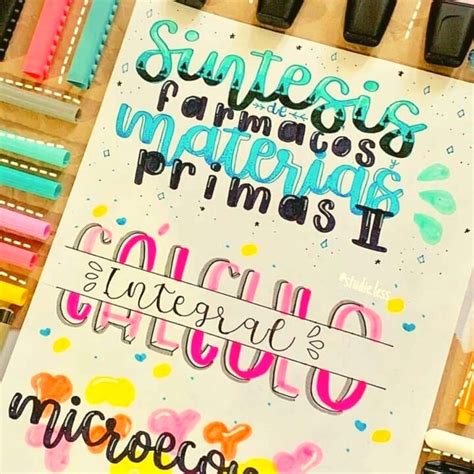 Sintesis
de
farmacos
y
materias
primas II
CÁLCULO
Integral
@studie.less
microecon